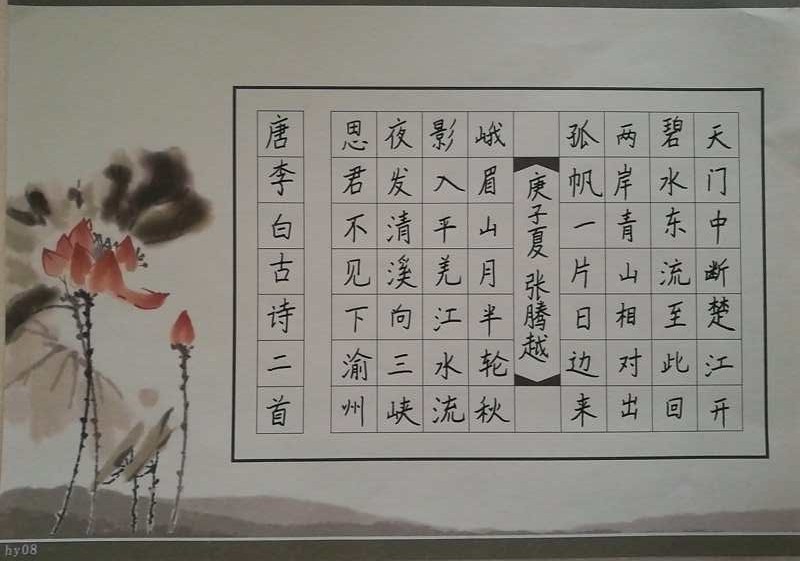 天门中断楚江开
碧水东流至此回
两岸青山相对出
孤帆一片日边来
庚子夏 张腾越
峨眉山月半轮秋
影入平羌江水流
夜发清溪向三峡
思君不见下渝州
唐李白古诗二首
hy08